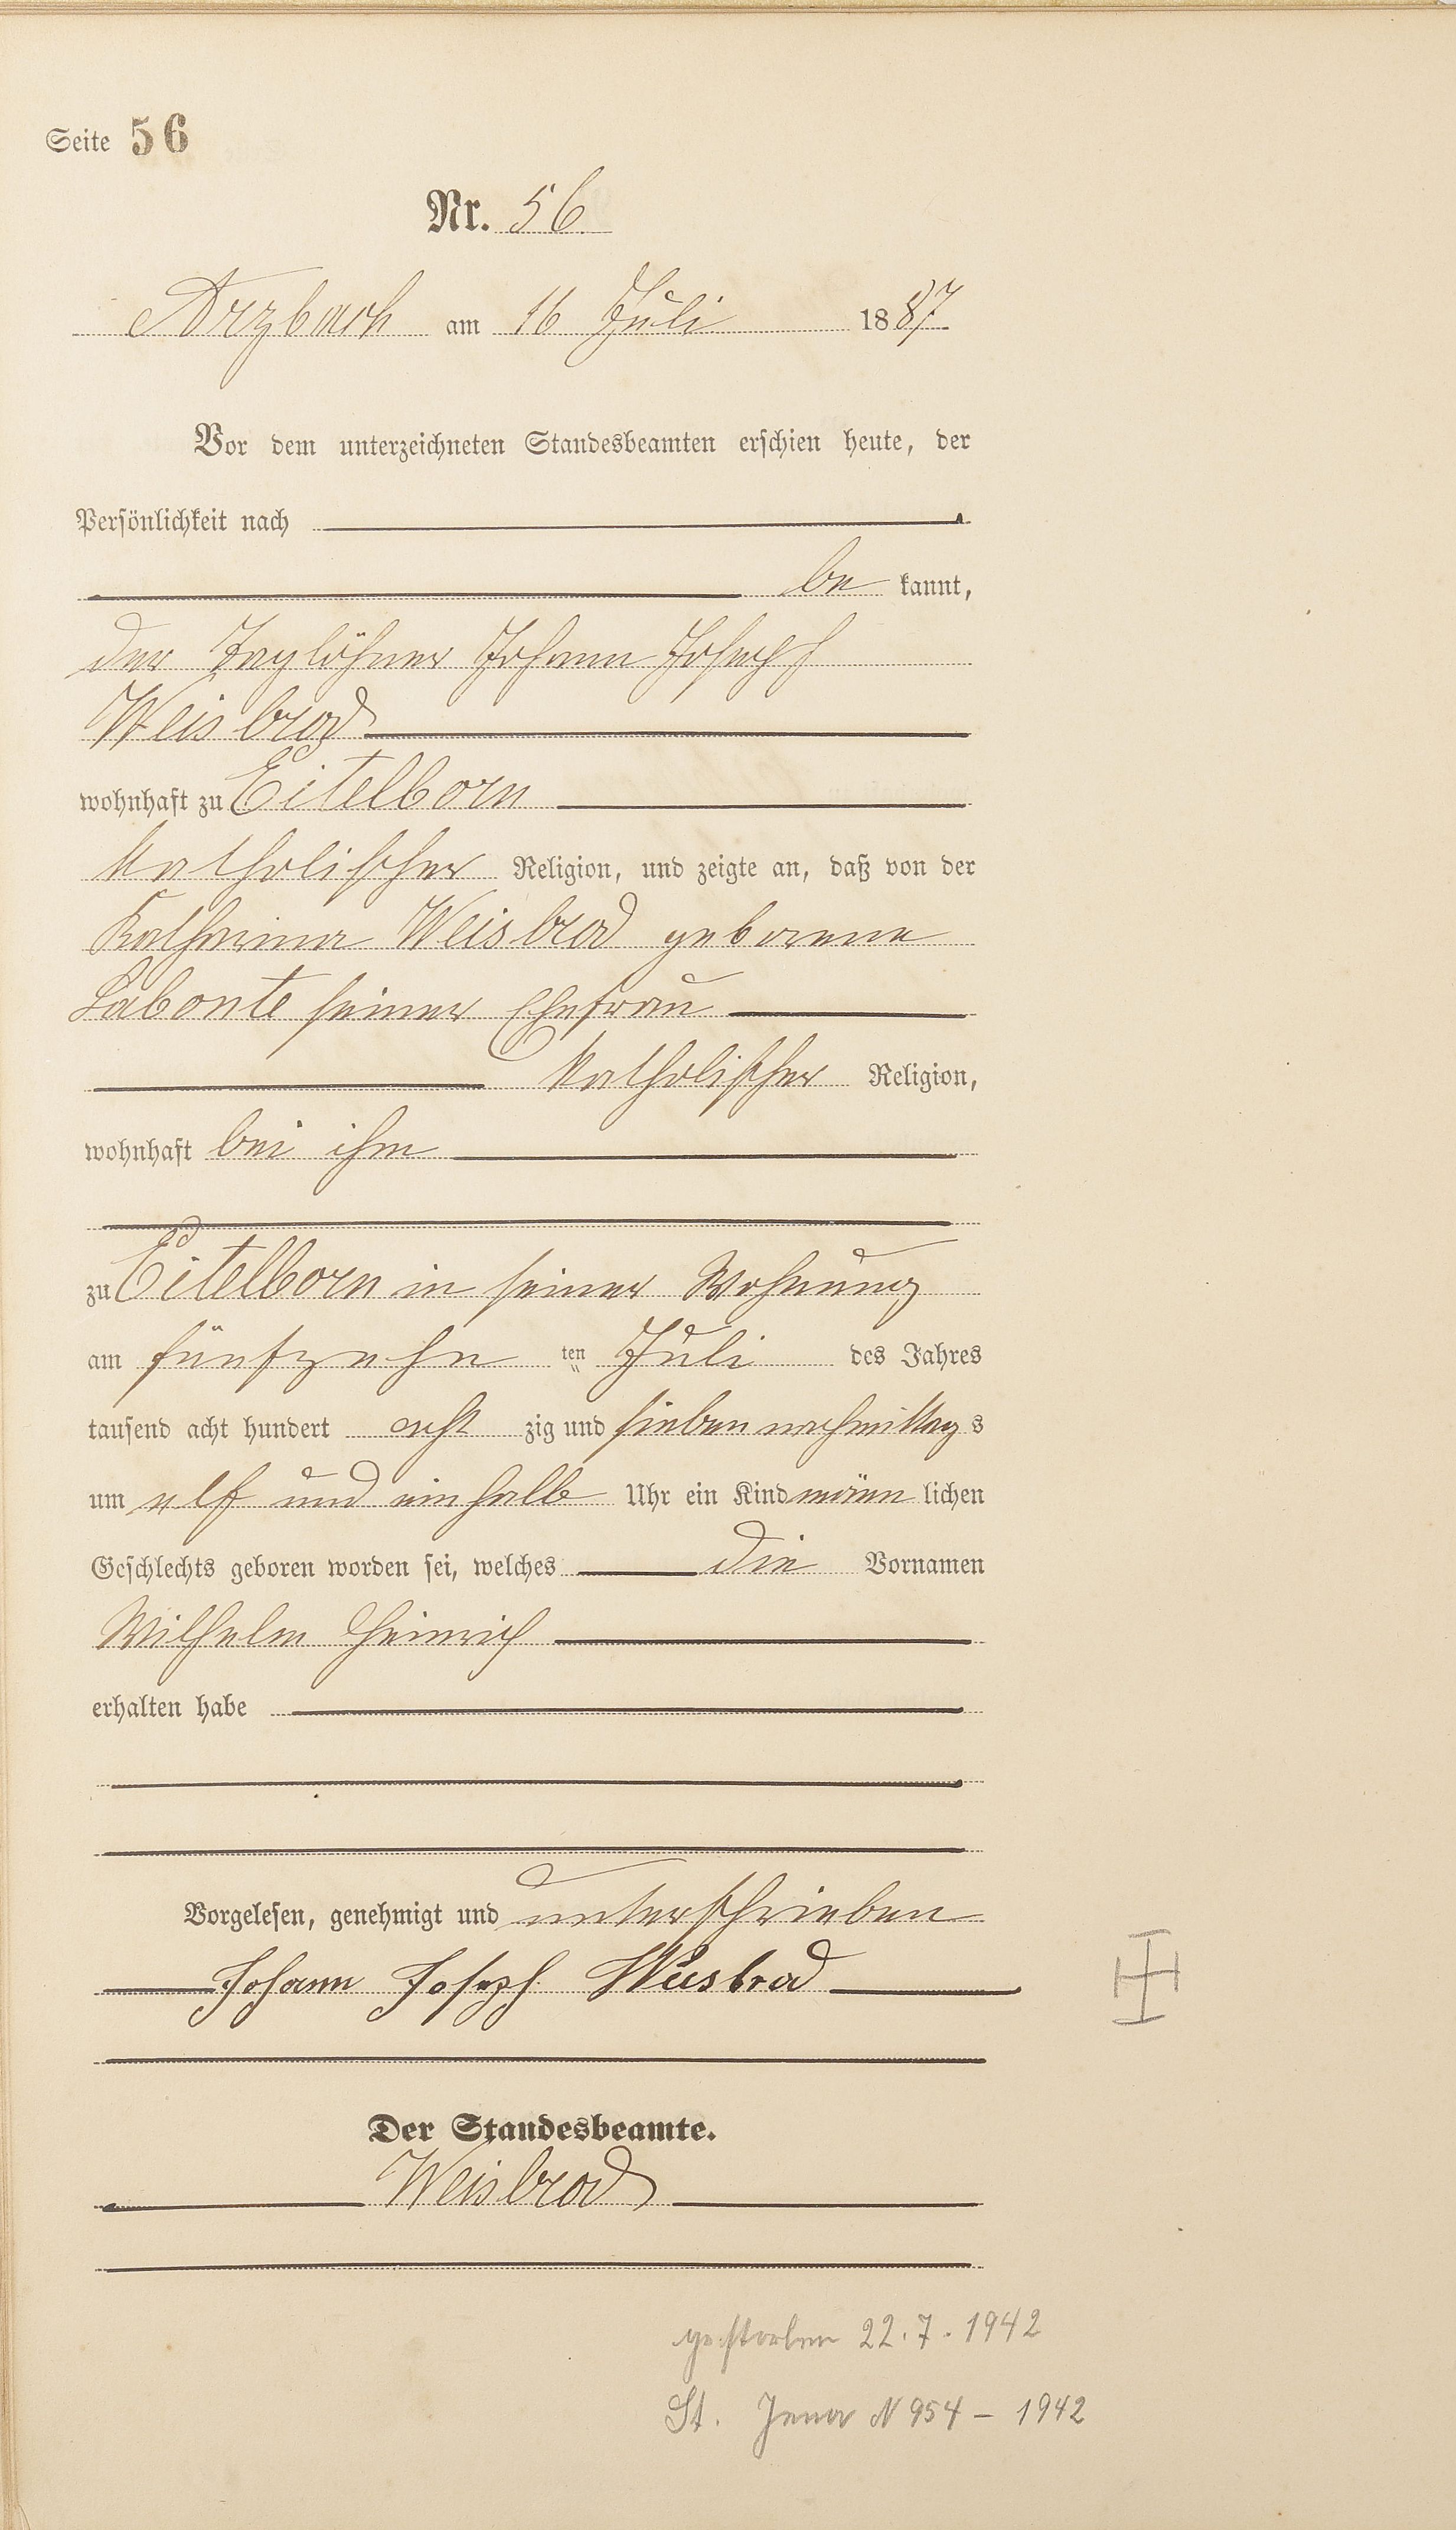 Seite 56
Nr. 56
Arzbach am 16 Juli 1887
Vor dem unterzeichneten Standesbeamten erschien heute, der
Persönlichkeit nach
be kannt,
der Taglöhner Johann Joseph
Weisbrod
wohnhaft zu Eitelborn
katholischer Religion, und zeigte an, daß von der
Katharina Weisbrod geborene
Labonte seiner Ehefrau
katholischer Religion,
wohnhaft bei ihm
zu Eitelborn in seiner Wohnung
am fünfzehn ten Juli des Jahres
tausend acht hundert acht zig und sieben nachmittags
um elf und einhalb Uhr ein Kind männlichen
Geschlechts geboren worden sei, welches die Vornamen
Wilhelm Heinrich
erhalten habe
Vorgelesen, genehmigt und unterschrieben
Johann Joseph Weisbrod
Der Standesbeamte.
Weisbrod
gestorben 22.7.1942
St. Jena N 954 – 1942